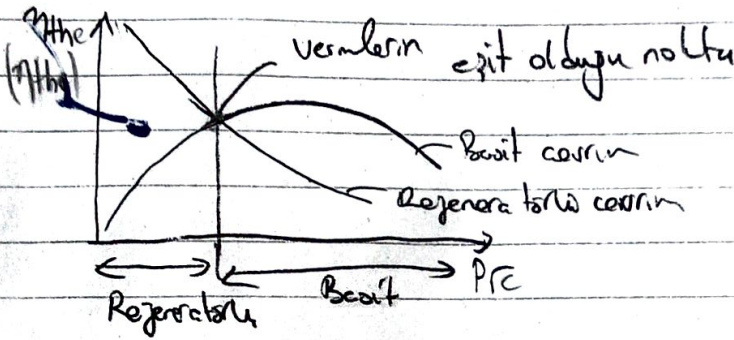 ηthe
(ηthe)
Verimlerin eşit olduğu nokta
Basit çevrim
Rejeneratörlü çevrim
Prc
Rejeneratörlü
Basit